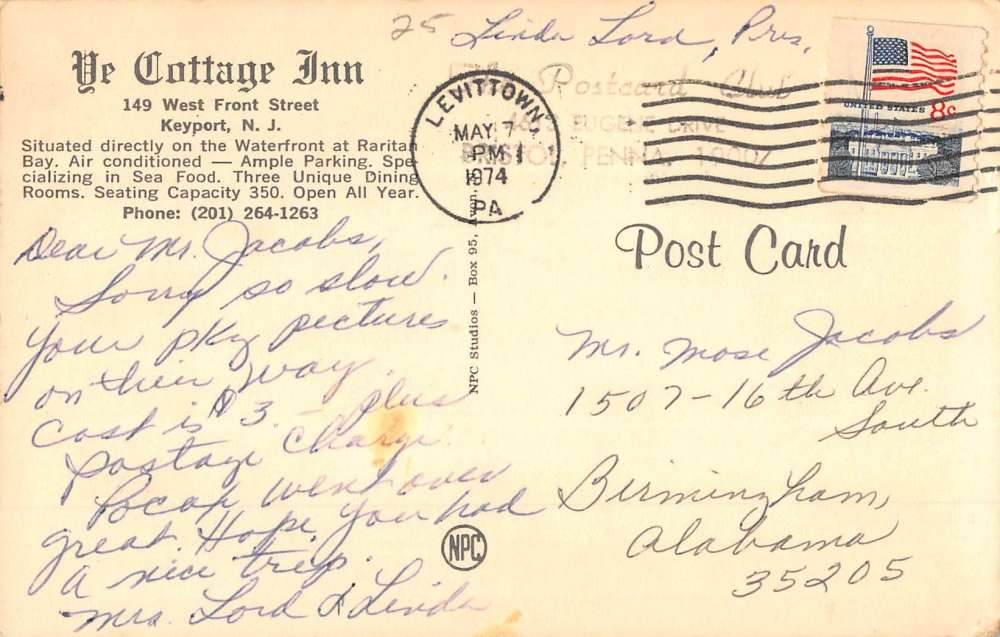 25 Linda Lord, Pres.
The Postcard Club
4613 EUGENE DRIVE
BRISTOL, PENNA. 19007
Ye Cottage Inn
149 West Front Street
Keyport, N. J.
Situated directly on the Waterfront at Raritan
Bay. Air conditioned — Ample Parking. Spe
cializing in Sea Food. Three Unique Dining
Rooms. Seating Capacity 350. Open All Year.
Phone: (201) 264-1263
LEVITTOWN,
MAY 7
PM
1974
PA
UNITED STATES 8c
Dear Mr. Jacobs,
Sorry so slow.
Your pkg pictures
on their way.
Cost is $3. – plus
postage charge.
Pocax went over
great. Hope you had
a nice trip.
Mrs. Lord & Linda
NPC Studios — Box 95,
NPC
Post Card
Mr. Mose Jacobs
1507-16th Ave.
South
Birmingham,
Alabama
35205